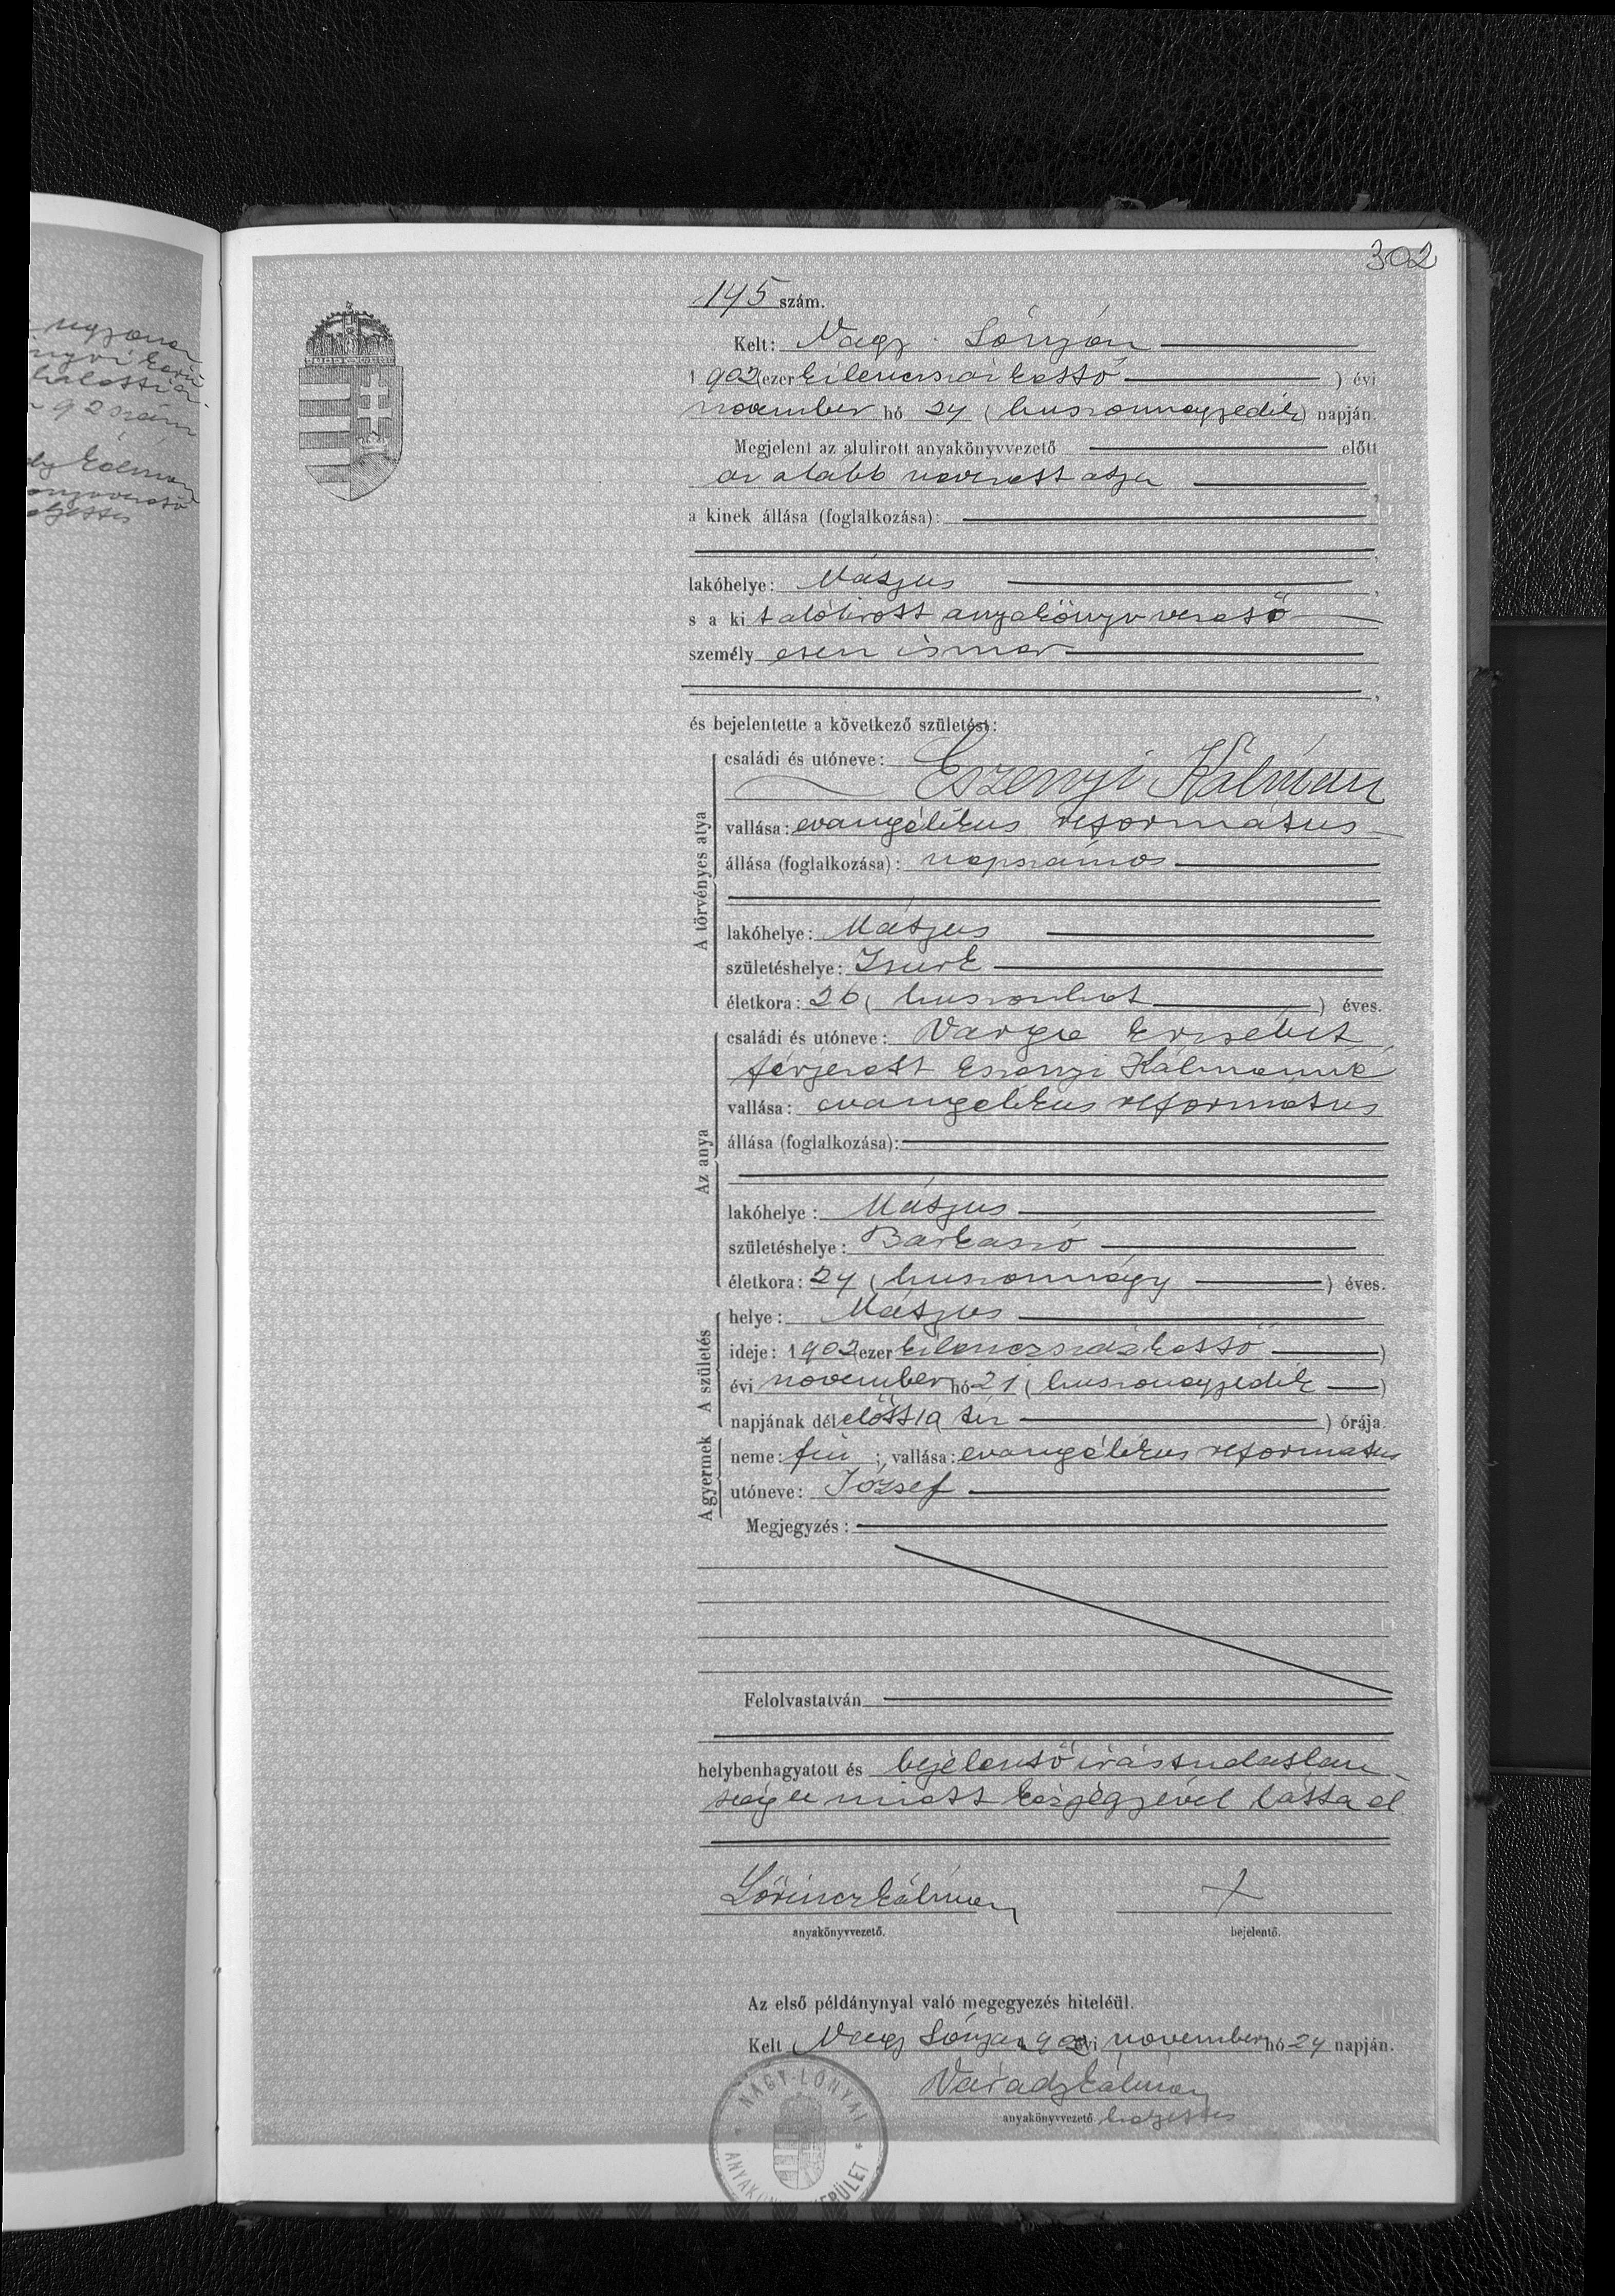 302
145 szám.
Kelt: Nagy Lónyán
1902 (ezer kilenczszázkettő) évi
november hó 24 (huszonnegyedik) napján.
Megjelent az alulirott anyakönyvvezető előtt
az alább nevezett atya
a kinek állása (foglalkozása):
lakóhelye: Mátyus
s a kit alólirott anyakönyvvezető
személyesen ismer
és bejelentette a következő születést:
A törvényes atya
családi és utóneve:
Eszenyi Kálmán
vallása: evangélikus református
állása (foglalkozása): napszámos
lakóhelye: Mátyus
születéshelye: Csurk
életkora: 26 (huszonhat) éves.
Az anya
családi és utóneve: Varga Erzsébet
férjezett Eszenyi Kálmánné
vallása: evangelikus református
állása (foglalkozása):
lakóhelye: Mátyus
születéshelye: Barkaszó
életkora: 24 (huszonnégy) éves.
A születés
helye: Mátyus
ideje: 1902 (ezer kilenczszázkettő)
évi november hó 21 (huszonegyedik)
napjának délelőtt 10 tíz) órája.
A gyermek
neme: fiú; vallása: evangélikus református
utóneve: József
Megjegyzés:
Felolvastatván
helybenhagyatott és bejelentő irástudatlan-
sága miatt kézjegyével látta el
Lőrincz Kálmán
anyakönyvvezető.
+
bejelentő.
Az első példánynyal való megegyezés hiteléül.
Kelt Nagy Lónya 1902 évi november hó 24 napján.
Várady Kálmán
anyakönyvvezető helyettes
NAGY-LÓNYAI